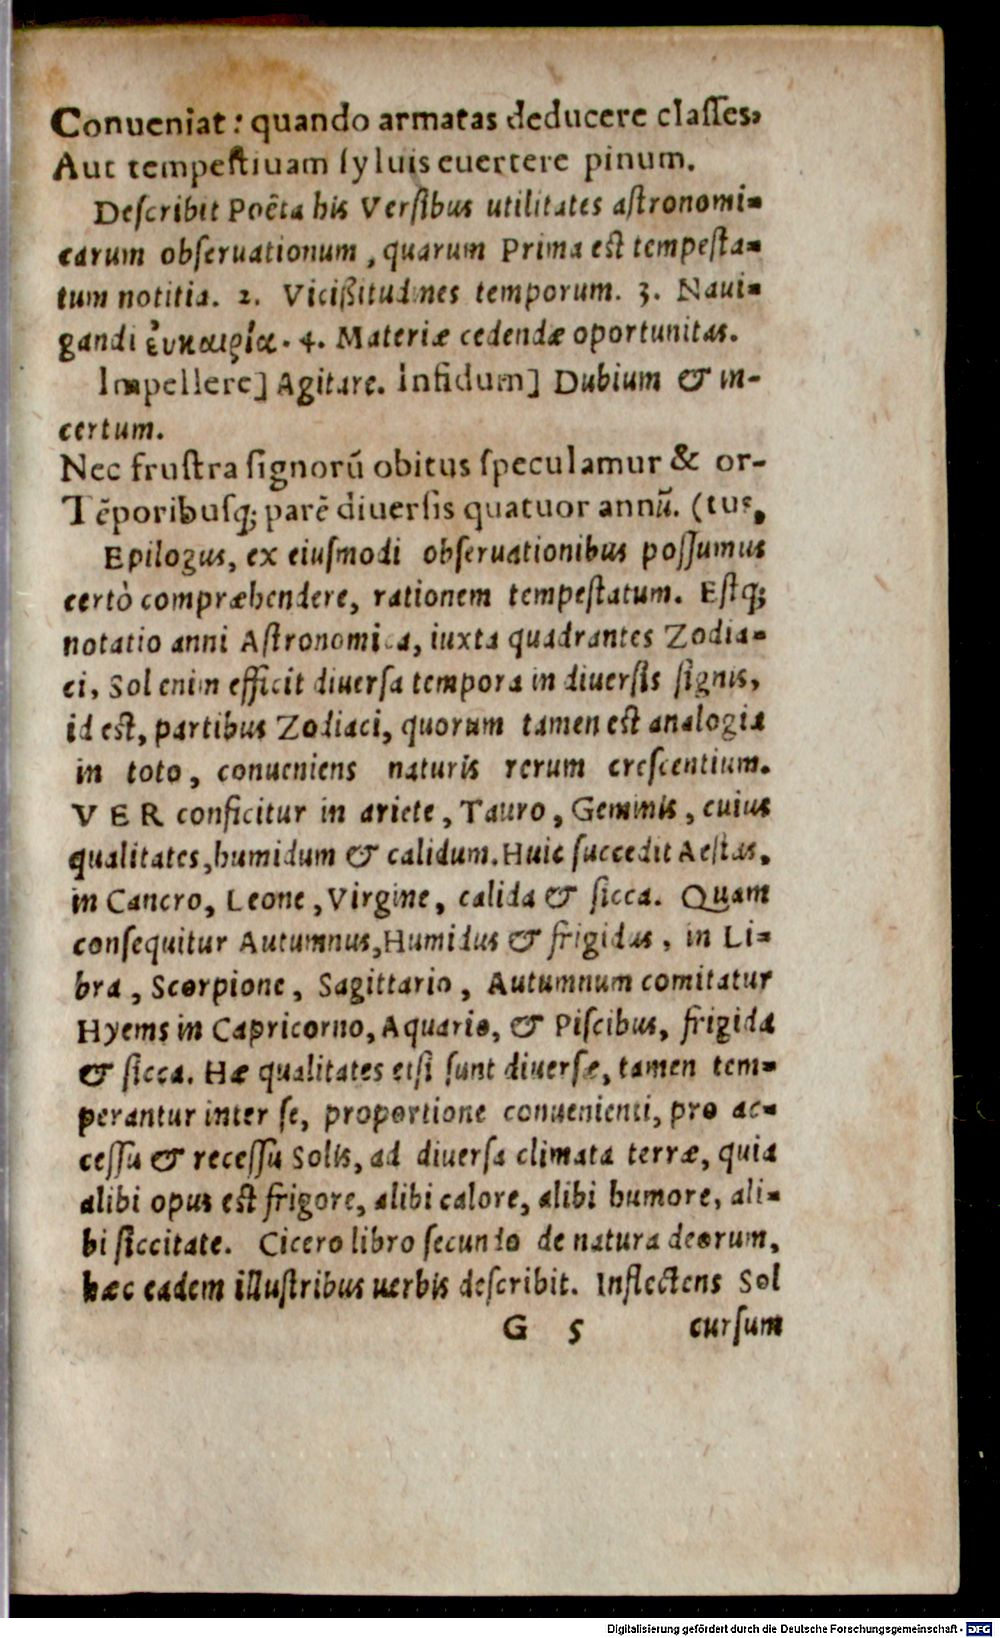 Conueniat: quando armatas deducere claſſes,
Aut tempeſtiuam ſyluis euertere pinum.
Deſcribit Poëta his Verſibus utilitates aſtronomi-
carum obſeruationum, quarum Prima eſt tempeſta-
tum notitia. 2. Viciſsitudines temporum. 3. Naui-
gandi ἐυκαιρία. 4. Materiæ cedendæ oportunitas.
Impellere] Agitare. Infidum] Dubium & in-
certum.
Nec fruſtra ſignorū obitus ſpeculamur & or-
Tēporibuſq; parē diuerſis quatuor annū. (tus,
Epilogus, ex eiuſmodi obſeruationibus poſſumus
certò compræhendere, rationem tempeſtatum. Eſtq;
notatio anni Aſtronomica, iuxta quadrantes Zodia-
ci, Sol enim efficit diuerſa tempora in diuerſis ſignis,
id eſt, partibus Zodiaci, quorum tamen eſt analogia
in toto, conueniens naturis rerum creſcentium.
VER conficitur in ariete, Tauro, Geminis, cuius
qualitates, humidum & calidum. Huic ſuccedit Aeſtas,
in Cancro, Leone, Virgine, calida & ſicca. Quam
conſequitur Autumnus, Humidus & frigidus, in Li-
bra, Scorpione, Sagittario, Autumnum comitatur
Hyems in Capricorno, Aquario, & Piſcibus, frigida
& ſicca. Hæ qualitates etſi ſunt diuerſæ, tamen tem-
perantur inter ſe, proportione conuenienti, pro ac-
ceſſu & receſſu Solis, ad diuerſa climata terræ, quia
alibi opus eſt frigore, alibi calore, alibi humore, ali-
bi ſiccitate. Cicero libro ſecundo de natura deorum,
hæc eadem illuſtribus uerbis deſcribit. Inflectens Sol
G 5 curſum
Digitalisierung gefördert durch die Deutsche Forschungsgemeinschaft - DFG